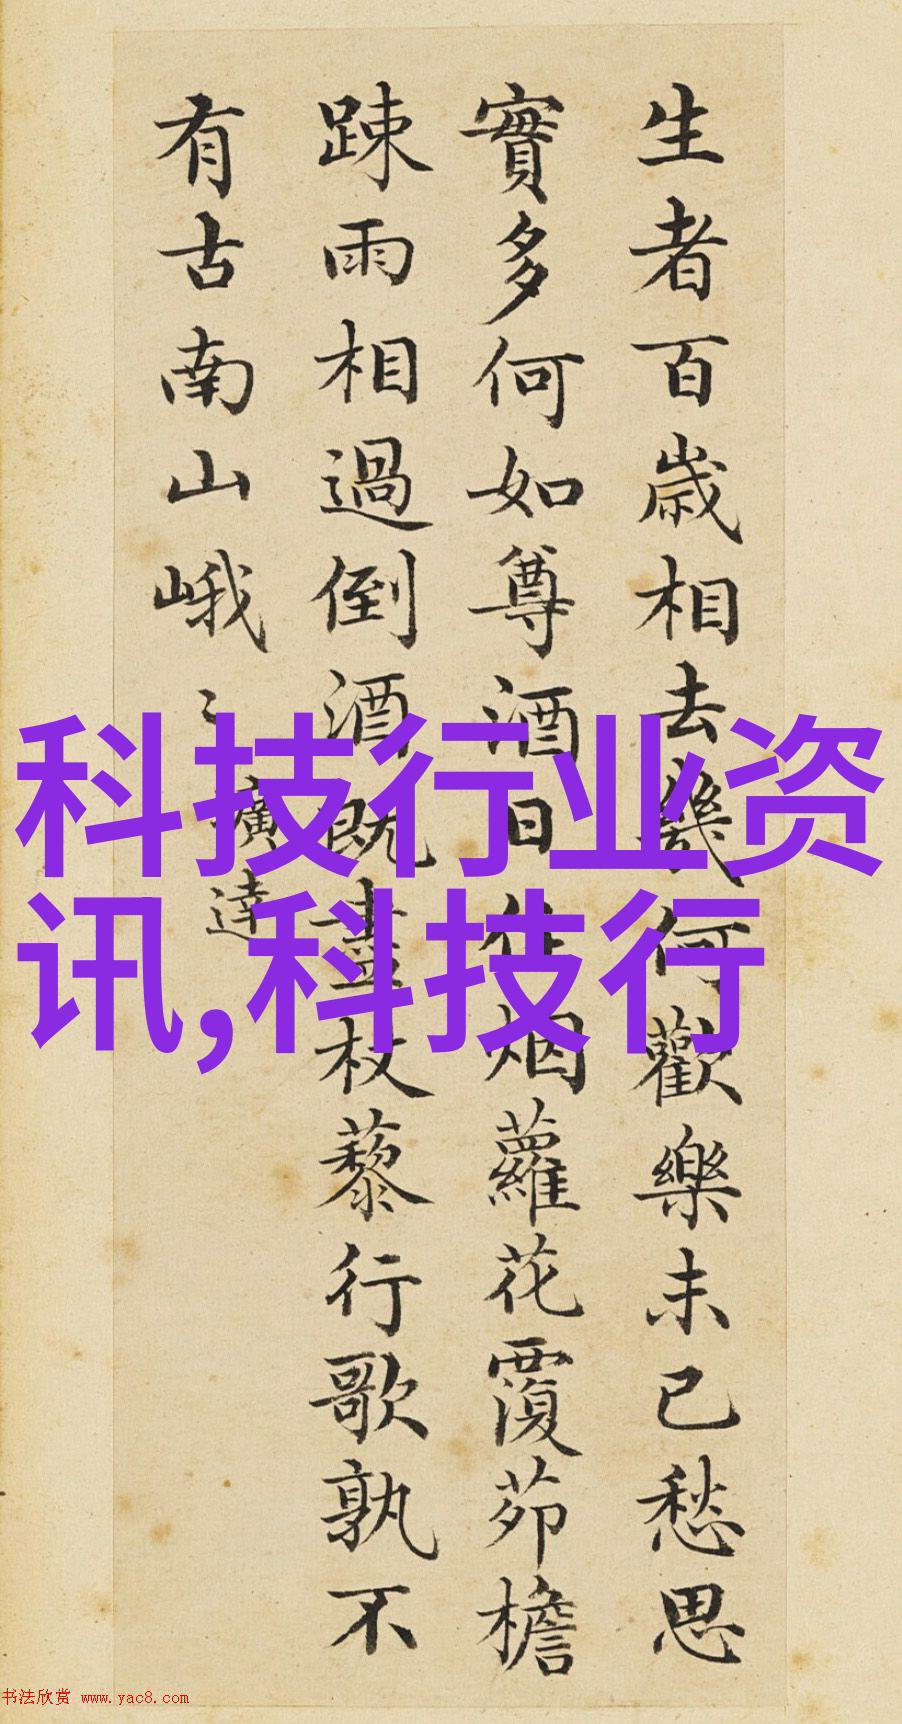 生者百歳相去幾何歡樂未已愁思
實多何如尊酒日往烟蘿花覆茆檐
踈雨相過倒酒既盡杖藜行歌孰不
有古南山峨〻
曠達
科技行业资
讯,科技行
书法欣赏 www.yac8.com